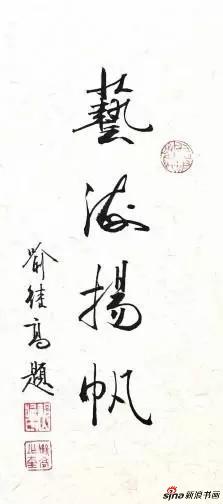 藝海揚帆
喻继高題
sina新浪书画